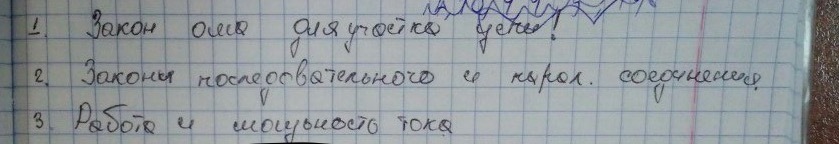 1. Закон ома для участка цепи!
2. Законы последовательного и парал. соединения.
3. Работа и мощьность тока